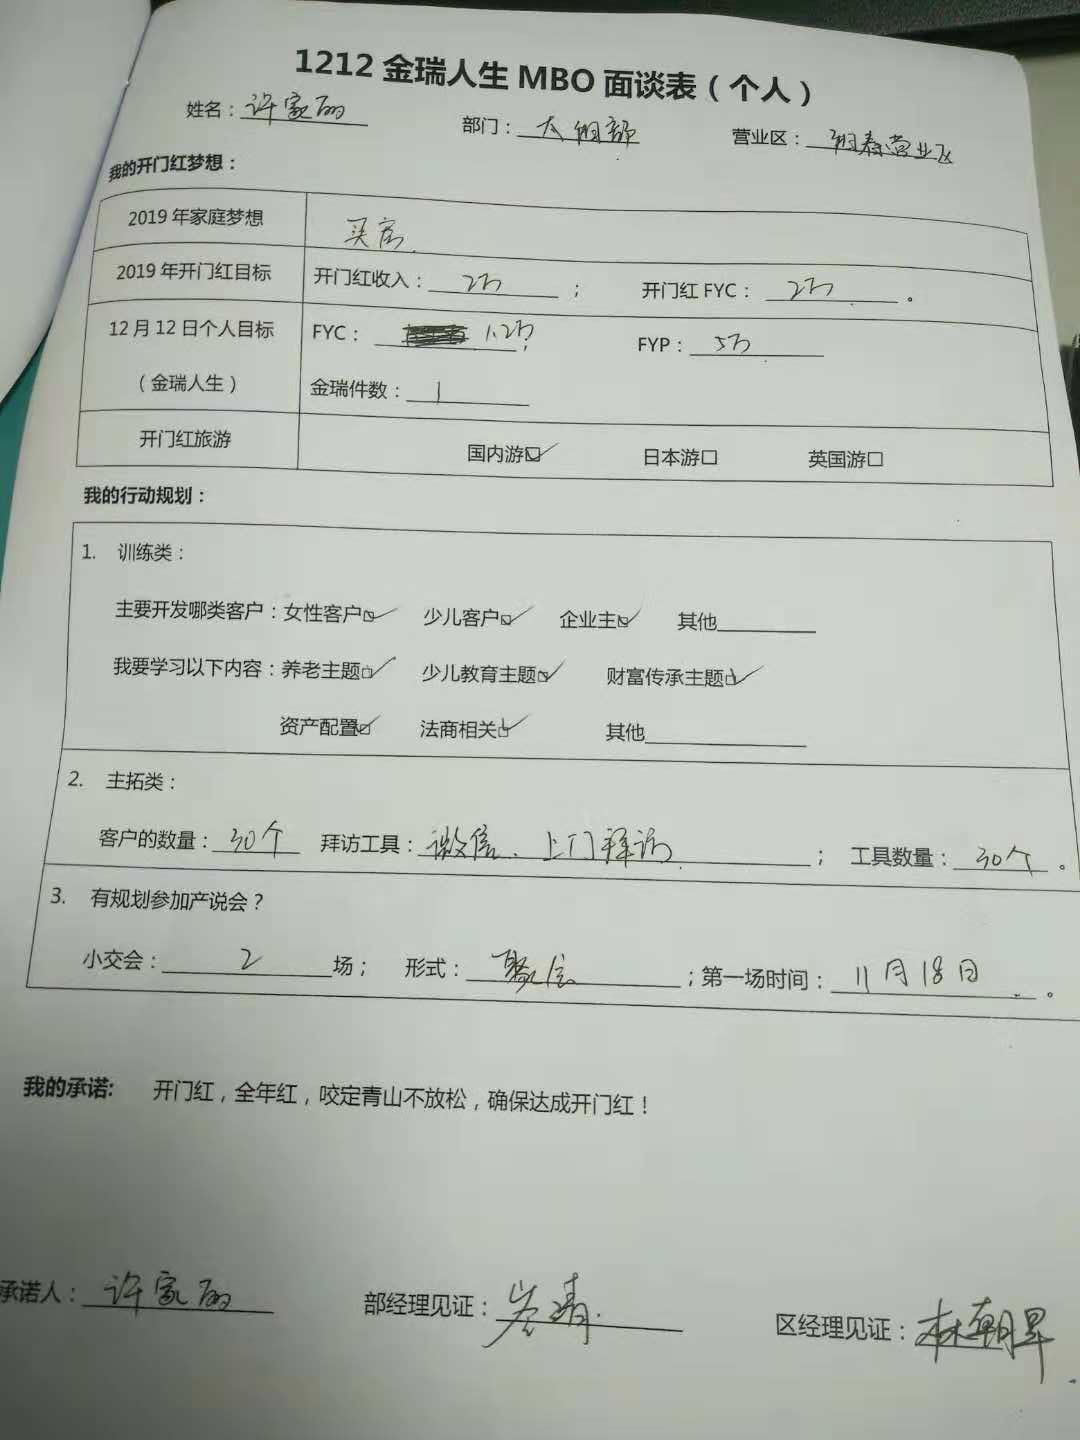 1212金瑞人生MBO面谈表（个人）
姓名：许家丽 部门： 营业区：营业区
我的开门红梦想：
2019年家庭梦想 买房.
2019年开门红目标 开门红收入：2万； 开门红FYC：2万。
12月12日个人目标 FYC：1.2万； FYP：5万
（金瑞人生） 金瑞件数：1
开门红旅游 国内游☑ 日本游□ 英国游□
我的行动规划：
1. 训练类：
主要开发哪类客户：女性客户☑ 少儿客户☑ 企业主☑ 其他
我要学习以下内容：养老主题☑ 少儿教育主题☑ 财富传承主题☑
资产配置☑ 法商相关☑ 其他
2. 主拓类：
客户的数量：30个 拜访工具：微信、上门拜访； 工具数量：30个。
3. 有规划参加产说会？
小交会：2场； 形式：；第一场时间：11月18日。
我的承诺: 开门红，全年红，咬定青山不放松，确保达成开门红！
承诺人：许家丽 部经理见证：岑靖 区经理见证：林朝昇